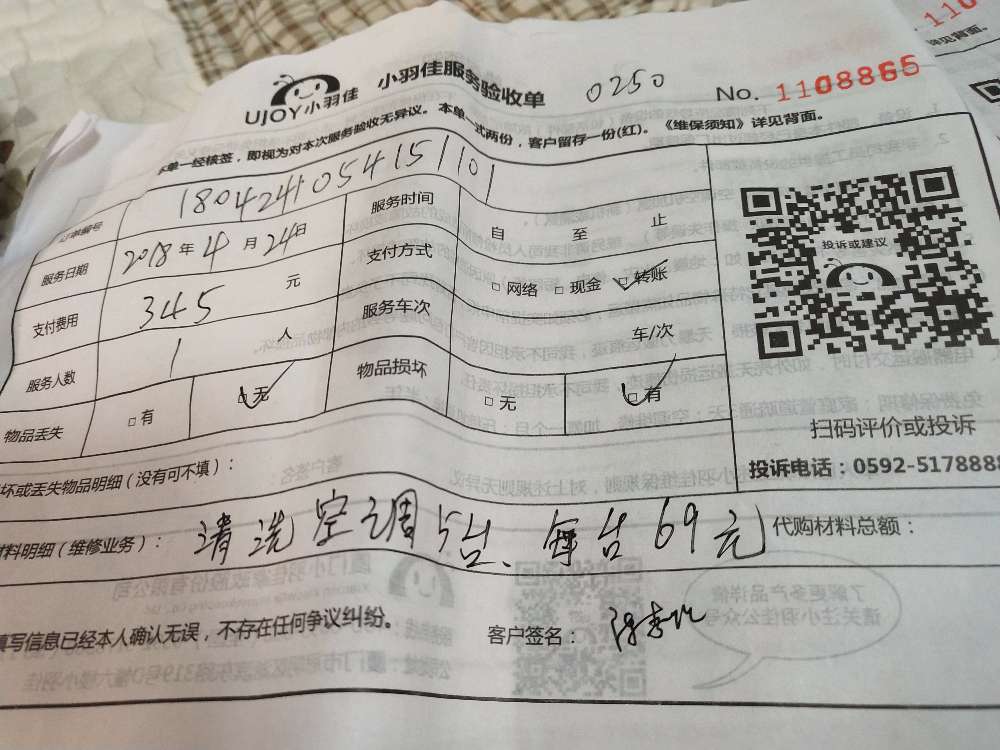 UJOY小羽佳 小羽佳服务验收单 0250 No. 1108865
本单一经核签，即视为对本次服务验收无异议。本单一式两份，客户留存一份(红)。《维保须知》详见背面。
订单编号 1804241054151101
服务日期 2018年4月24日 服务时间 自 至 止
支付费用 345 元 支付方式 □网络 □现金 □转账
服务人数 1 人 服务车次 车/次
物品丢失 □有 □无 物品损坏 □无 □有
坏或丢失物品明细（没有可不填）：
材料明细（维修业务）： 清洗空调5台、每台69元 代购材料总额：
填写信息已经本人确认无误，不存在任何争议纠纷。 客户签名：
投诉或建议
扫码评价或投诉
投诉电话：0592-5178888
详见背面。